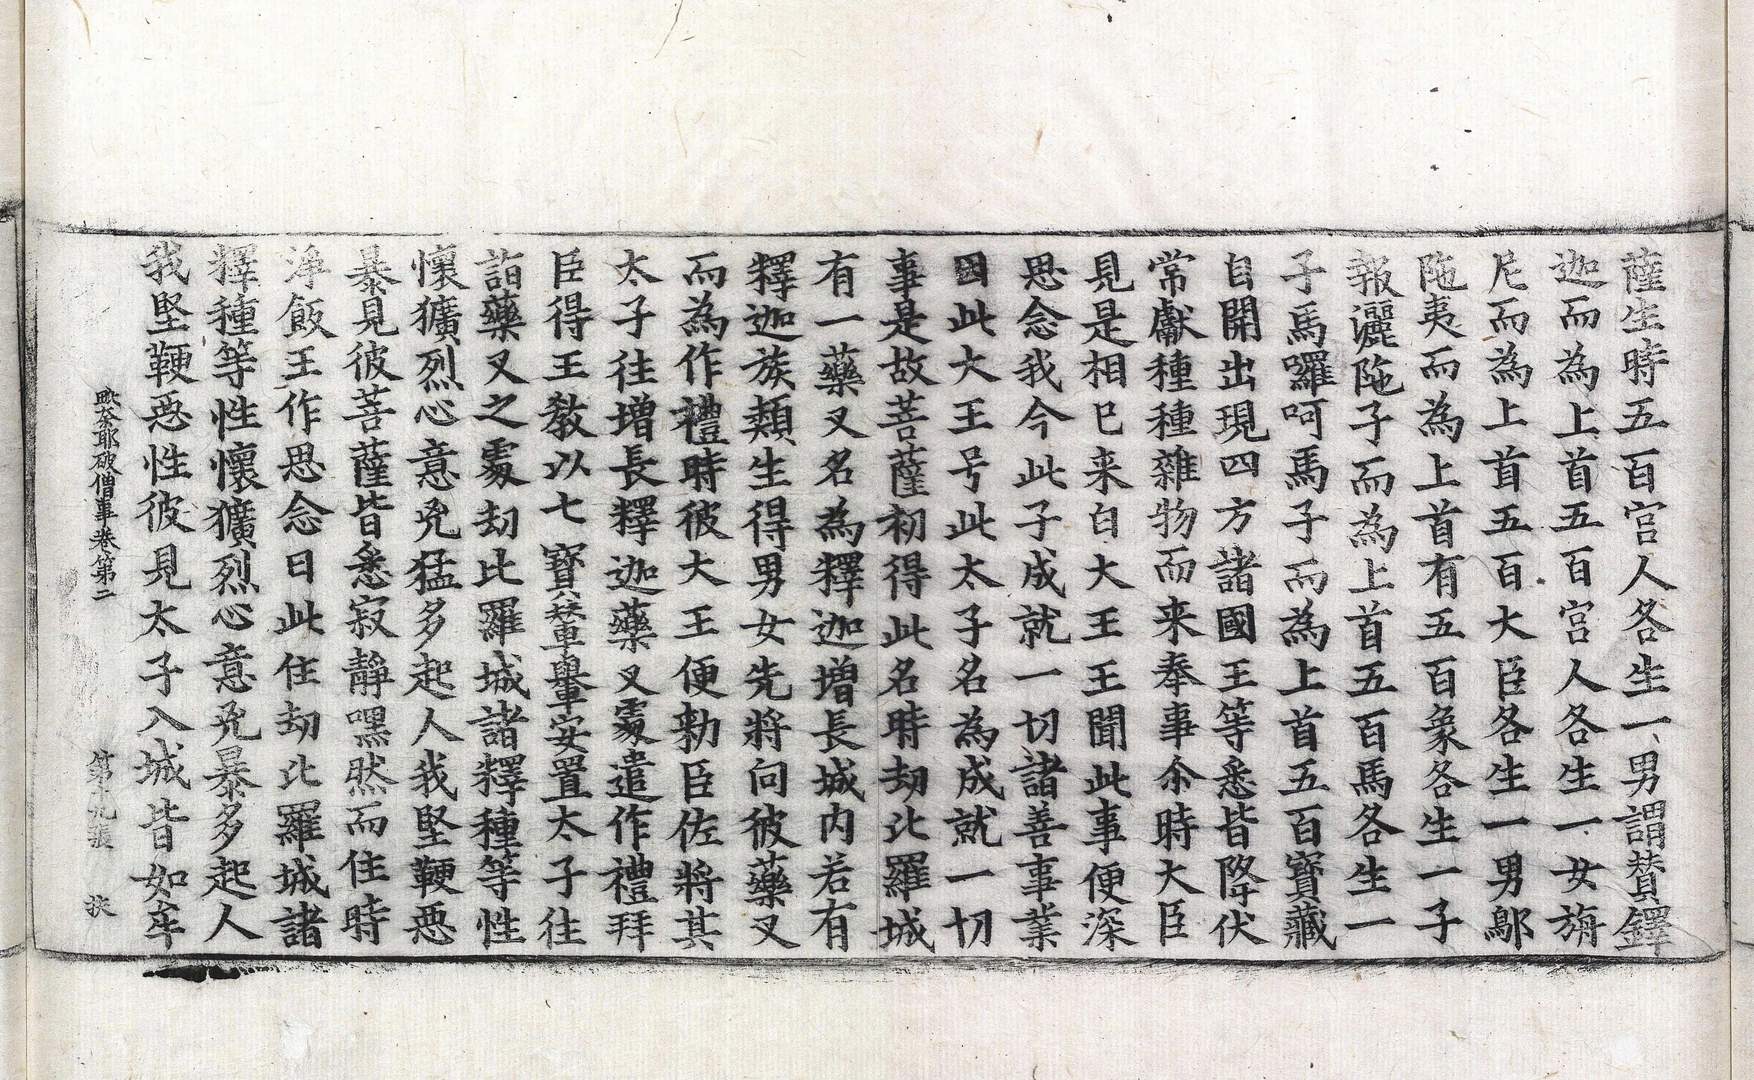 薩生時五百官人各生一男謂賛鐸
迦而為上首五百宮人各生一女旃
尼而為上首五百大臣各生一男鄔
陁夷而為上首有五百象各生一子
報灑陁子而為上首五百馬各生一
子馬囉呵馬子而為上首五百寶藏
自開出現四方諸國王等悉皆降伏
常獻種種雜物而来奉事尒時大臣
見是相已来白大王王聞此事便深
思念我今此子成就一切諸善事業
因此大王号此太子名為成就一切
事是故菩薩初得此名時劫比羅城
有一藥叉名為釋迦增長城內若有
釋迦族類生得男女先將向彼藥叉
而為作禮時彼大王便勑臣佐將其
太子往增長釋迦藥叉䖏遣作禮拜
臣得王教以七寶輦轝安置太子往
詣藥叉之䖏劫比羅城諸釋種等性
懷獷烈心意兇猛多起人我堅鞕惡
暴見彼菩薩皆悉寂靜嘿然而住時
淨飯王作思念曰此住劫比羅城諸
釋種等性懷獷烈心意兇暴多起人
我堅鞕惡性彼見太子入城皆如牟
毗奈耶破僧事卷第二　第九張　挾